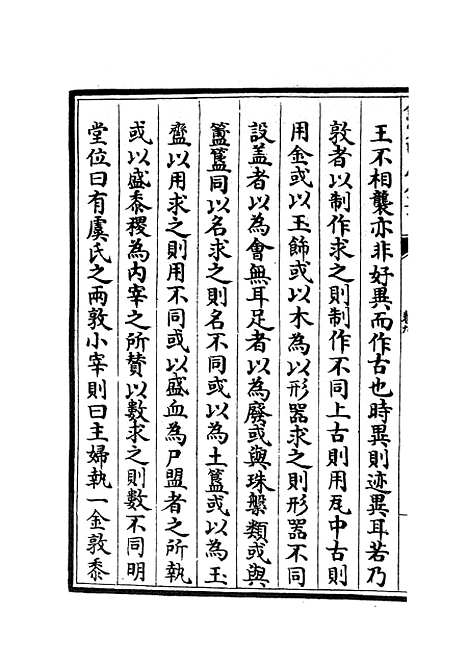 王不相襲亦非好異而作古也時異則迹異耳若乃
敦者以制作求之則制作不同上古則用瓦中古則
用金或以玉飾或以木為以形器求之則形器不同
設盖者以為會無耳足者以為廢或與珠槃類或與
簠簋同以名求之則名不同或以為土簋或以為玉
齍以用求之則用不同或以盛血為尸盟者之所執
或以盛黍稷為内宰之所贊以數求之則數不同明
堂位曰有虞氏之兩敦小宰則曰主婦執一金敦黍